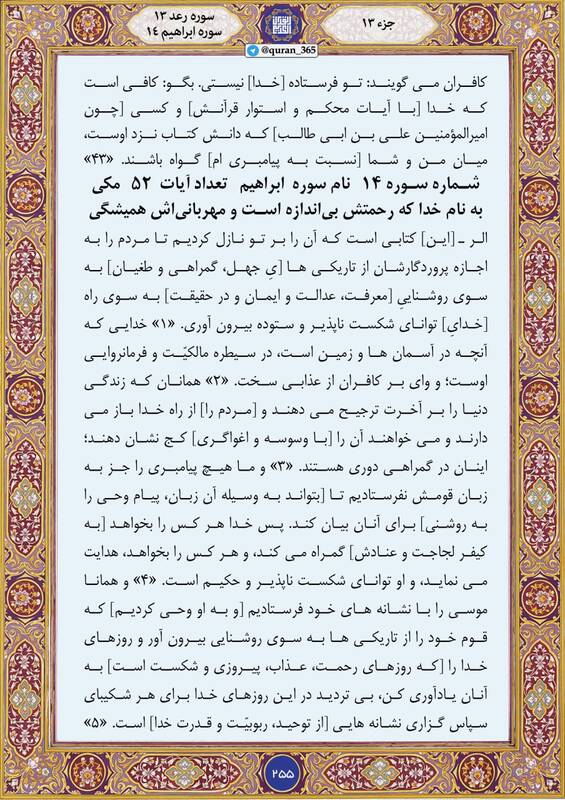 جزء ۱۳
سوره رعد ۱۳
سوره ابراهیم ۱۴
@quran_365
کافران می گویند: تو فرستاده [خدا] نیستی. بگو: کافی است
که خدا [با آیات محکم و استوار قرآنش] و کسی [چون
امیرالمؤمنین علی بن ابی طالب] که دانش کتاب نزد اوست،
میان من و شما [نسبت به پیامبری ام] گواه باشند. «۴۳»
شماره سوره ۱۴ نام سوره ابراهیم تعداد آیات ۵۲ مکی
به نام خدا که رحمتش بی‌اندازه است و مهربانی‌اش همیشگی
الر ـ [این] کتابی است که آن را بر تو نازل کردیم تا مردم را به
اجازه پروردگارشان از تاریکی ها [یِ جهل، گمراهی و طغیان] به
سوی روشناییِ [معرفت، عدالت و ایمان و در حقیقت] به سوی راه
[خدایِ] توانای شکست ناپذیر و ستوده بیرون آوری. «۱» خدایی که
آنچه در آسمان ها و زمین است، در سیطره مالکیّت و فرمانروایی
اوست؛ و وای بر کافران از عذابی سخت. «۲» همانان که زندگی
دنیا را بر آخرت ترجیح می دهند و [مردم را] از راه خدا باز می
دارند و می خواهند آن را [با وسوسه و اغواگری] کج نشان دهند؛
اینان در گمراهی دوری هستند. «۳» و ما هیچ پیامبری را جز به
زبان قومش نفرستادیم تا [بتواند به وسیله آن زبان، پیام وحی را
به روشنی] برای آنان بیان کند. پس خدا هر کس را بخواهد [به
کیفر لجاجت و عنادش] گمراه می کند، و هر کس را بخواهد، هدایت
می نماید، و او توانای شکست ناپذیر و حکیم است. «۴» و همانا
موسی را با نشانه های خود فرستادیم [و به او وحی کردیم] که
قوم خود را از تاریکی ها به سوی روشنایی بیرون آور و روزهای
خدا را [که روزهای رحمت، عذاب، پیروزی و شکست است] به
آنان یادآوری کن، بی تردید در این روزهای خدا برای هر شکیبای
سپاس گزاری نشانه هایی [از توحید، ربوبیّت و قدرت خدا] است. «۵»
۲۵۵